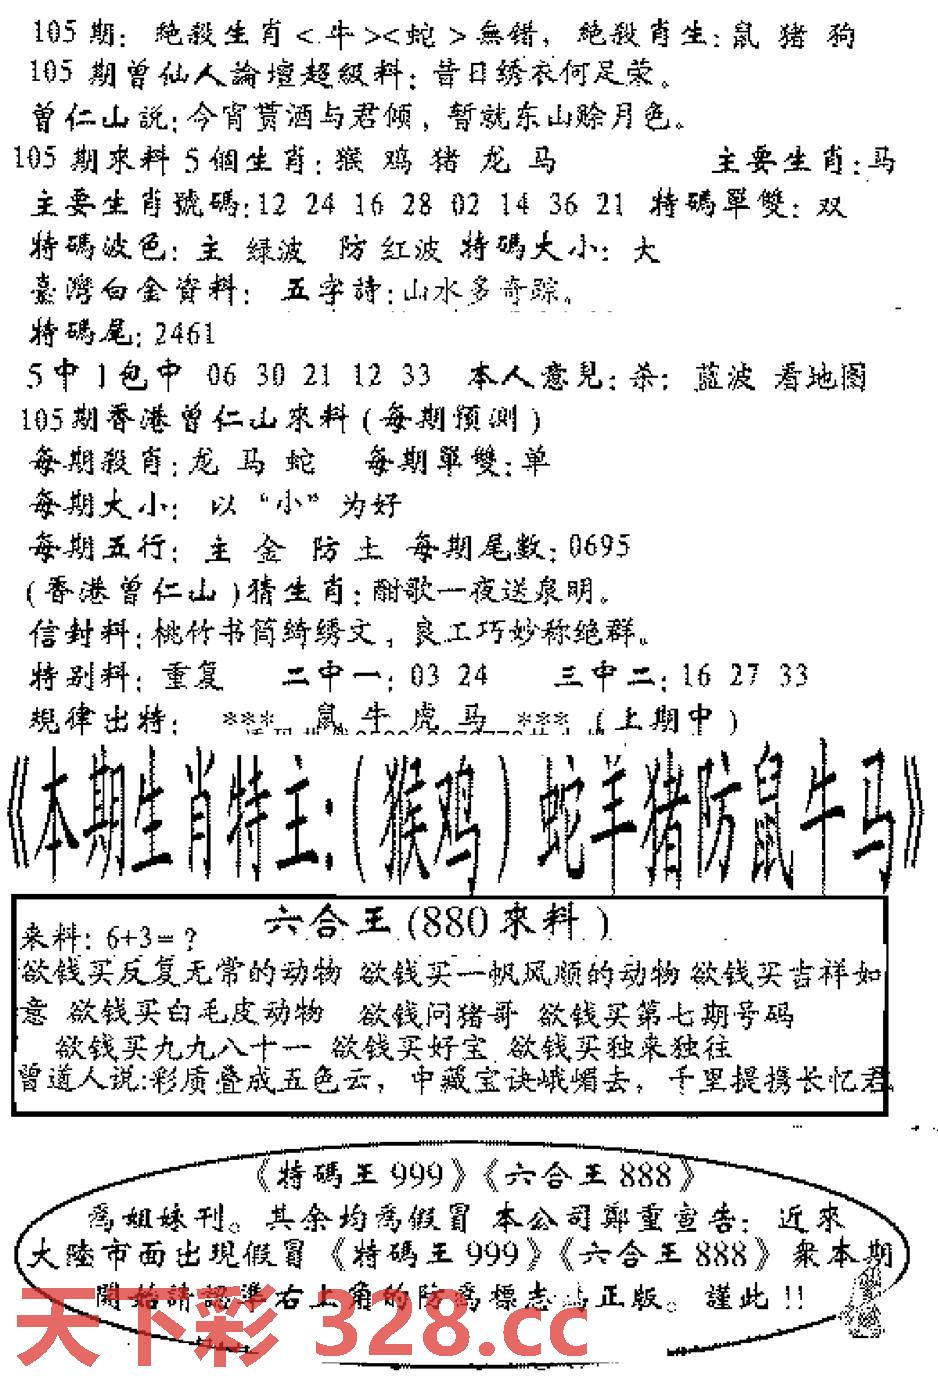 105期: 絶殺生肖<牛><蛇>無錯, 絶殺肖生:鼠 猪 狗
105期曾仙人論壇超級料:昔日绣衣何足荣。
曾仁山説:今宵贳酒与君倾, 暫就东山赊月色。
105期來料5個生肖:猴 鸡 猪 龙 马 主要生肖:马
主要生肖號碼:12 24 16 28 02 14 36 21 特碼單雙: 双
特碼波色: 主 绿波 防 红波 特碼大小: 大
臺灣白金資料: 五字詩:山水多奇踪。
特碼尾:2461
5中1包中 06 30 21 12 33 本人意見:恭: 蓝波 看地图
105期香港曾仁山來料(每期預測)
每期殺肖:龙 马 蛇 每期單雙:单
每期大小: 以“小”为好
每期五行: 主 金 防 土 每期尾数:0695
(香港曾仁山)猜生肖:酣歌一夜送泉明。
信封料:桃竹书筒绮绣文, 良工巧妙称绝群。
特别料: 重复 二中一: 03 24 三中二:16 27 33
規律出特: *** 鼠 牛 虎 马 *** (上期中)
《本期生肖特主:(猴鸡)蛇羊猪防鼠牛马》
六合王(880來料)
来料: 6+3=?
欲钱买反复无常的动物 欲钱买一帆风顺的动物 欲钱买吉祥如
意 欲钱买白毛皮动物 欲钱问猪哥 欲钱买第七期号码
欲钱买九九八十一 欲钱买好宝 欲钱买独来独往
曾道人说:彩质叠成五色云, 中藏宝诀峨嵋去, 千里提携长忆君
《特碼王999》《六合王888》
為姐妹刊。其余均為假冒 本公司鄭重宣告: 近來
大陸市面出現假冒《特碼王999》《六合王888》衆本期
開始請認準右上角的防為標志為正版。謹此!!
天下彩 328.cc